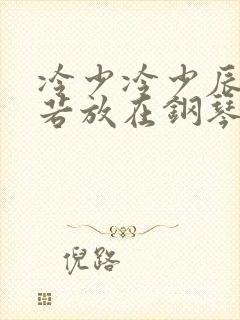 冷少冷少辰
若放在鋼琴
倪路